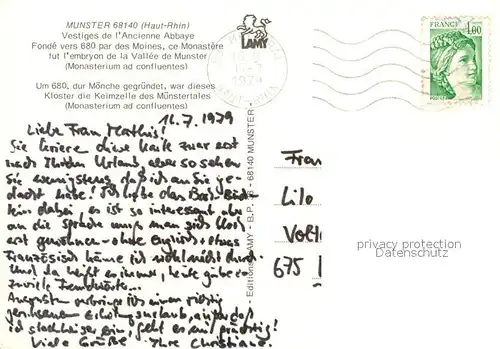 MUNSTER 68140 (Haut-Rhin)
Vestiges de l'Ancienne Abbaye
Fondé vers 680 par des Moines, ce Monastère
fut l'embryon de la Vallée de Munster
(Monasterium ad confluentes)
Um 680, dur Mönche gegründet, war dieses
Kloster die Keimzelle des Münstertales
(Monasterium ad confluentes)
LAMY
1979
FRANCE
1,00
Editions LAMY - B.P. - 68140 MUNSTER -
16.7.1979
Liebe Frau Mathis!
Sie kriere diese Karte zwar erst
nach Ihrem Urlaub, aber so sehen
Sie wenigstens, daß ich an Sie ge-
dacht habe! Ich habe das
dabei es ist so interessant aber
an die Sprache muß man sich
erst gewöhnen - ohne Englisch + etwas
Französisch käme ich nicht durch
Und da heißt es immer, gäbe es
zuviele Fremdwörter...
Augusten verbringe ich einen richtig
Erholungsurlaub, außer daß
ich ein! geht es mir prächtig!
Viele Grüße Ihre Christiane.
Frau
Lilo
675
privacy protection
Datenschutz